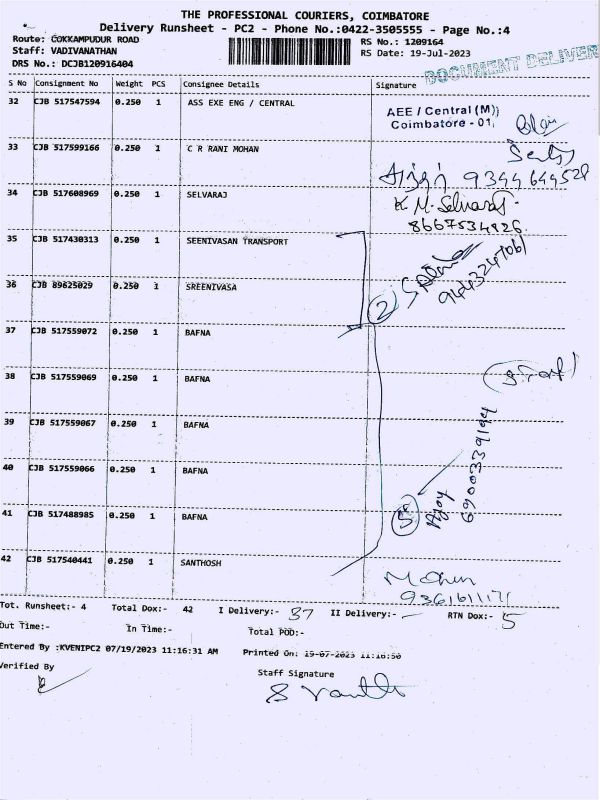 THE PROFESSIONAL COURIERS, COIMBATORE
Delivery Runsheet - PC2 - Phone No.:0422-3505555 - Page No.:4
Route: COKKAMPUDUR ROAD
RS No.: 1209164
Staff: VADIVANATHAN
RS Date: 19-Jul-2023
DRS No.: DCJB120916404
DOCUMENT DELIVER
S No Consignment No Weight PCS Consignee Details Signature
32 CJB 517547594 0.250 1 ASS EXE ENG / CENTRAL
AEE / Central (M)
Coimbatore - 01
33 CJB 517599166 0.250 1 C R RANI MOHAN
9344644528
34 CJB 517608969 0.250 1 SELVARAJ
K M. Selvaraj
8667534926
35 CJB 517430313 0.250 1 SEENIVASAN TRANSPORT
36 CJB 89625029 0.250 1 SREENIVASA
2
37 CJB 517559072 0.250 1 BAFNA
38 CJB 517559069 0.250 1 BAFNA
39 CJB 517559067 0.250 1 BAFNA
40 CJB 517559066 0.250 1 BAFNA
41 CJB 517488985 0.250 1 BAFNA
5 Ajay 6900339194
42 CJB 517540441 0.250 1 SANTHOSH
Mohan
Tot. Runsheet:- 4 Total Dox:- 42 I Delivery:- 37 II Delivery:- – RTN Dox:- 5
Out Time:- In Time:- Total POD:-
Entered By :KVENIPC2 07/19/2023 11:16:31 AM Printed On: 19-07-2023 11:16:50
Verified By
Staff Signature